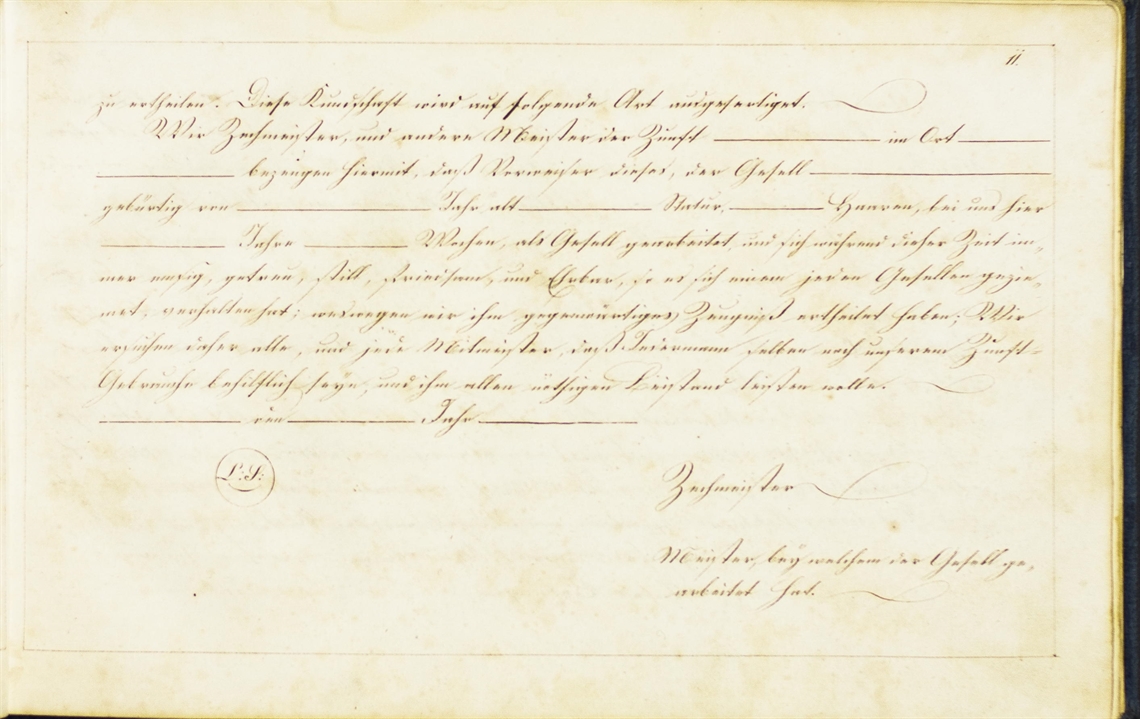 11.
zu ertheilen. Diese Kundschaft wird auf folgende Art ausgefertiget.
Wir Zechmeister, und andere Meister der Zunft ——— im Ort ———
——— bezeugen hiermit, daß Vorweiser dieses, der Gesell ———
gebürtig von ——— Jahr alt ——— Statur, ——— Haaren, bei uns hier
——— Jahre ——— Wochen, als Gesell gearbeitet, und sich während dieser Zeit im-
mer emsig, getreu, still, friedsam, und Ehrbar, so es sich einem jeden Gesellen gezie-
met, verhalten hat; weswegen wir ihm gegenwärtiges Zeugniß ertheilet haben; Wir
ersuchen daher alle, und jede Mitmeister, daß Jedermann selben nach unserem Zunft-
Gebrauche behilflich seyn, und ihm allen nöthigen Beistand leisten wolle.
——— den ——— Jahr ———
L: S:
Zechmeister
Meister, bey welchem der Gesell ge-
arbeitet hat.